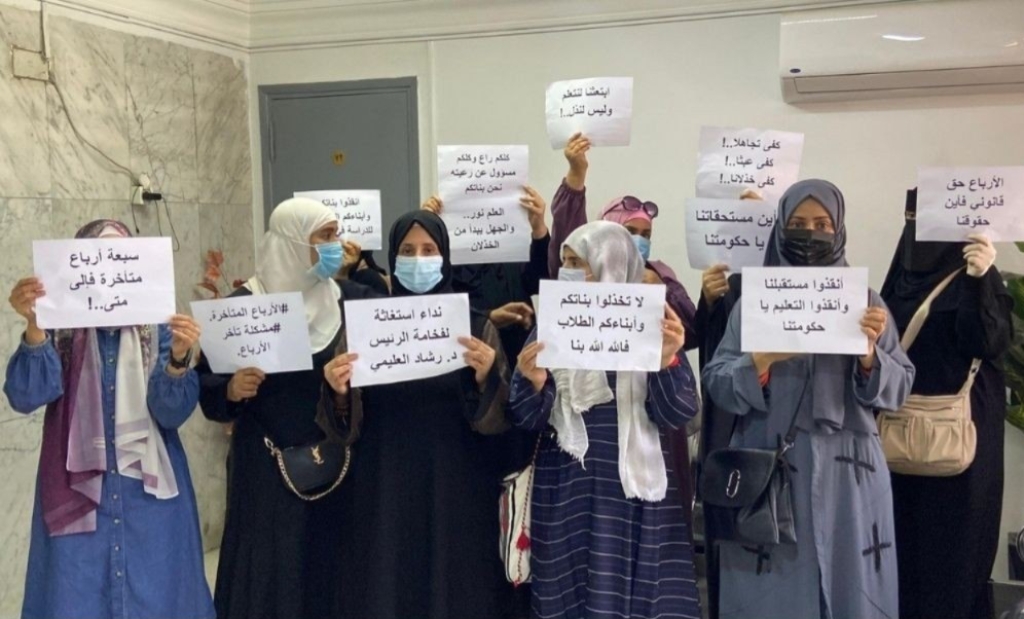 ابتعثنا لنتعلم
وليس لنذل..!
كلكم راع وكلكم
مسؤول عن رعيته
نحن بناتكم
العلم نور..
والجهل يبدأ من
الخذلان
كفى تجاهلا..!
كفى عبثا..!
كفى خذلانا..!
الأرباع حق
قانوني فأين
حقوقنا
انقذوا بناته
وأبناءكم
للدراسة في
أين مستحقاتنا
يا حكومتنا
سبعة أرباع
متأخرة فإلى
متى..!
#الأرباع المتأخرة.
#مشكلة تأخر
الأرباع.
نداء استغاثة
لفخامة الرئيس
د. رشاد العليمي
لا تخذلوا بناتكم
وأبناءكم الطلاب
فالله الله بنا
أنقذوا مستقبلنا
وأنقذوا التعليم يا
حكومتنا